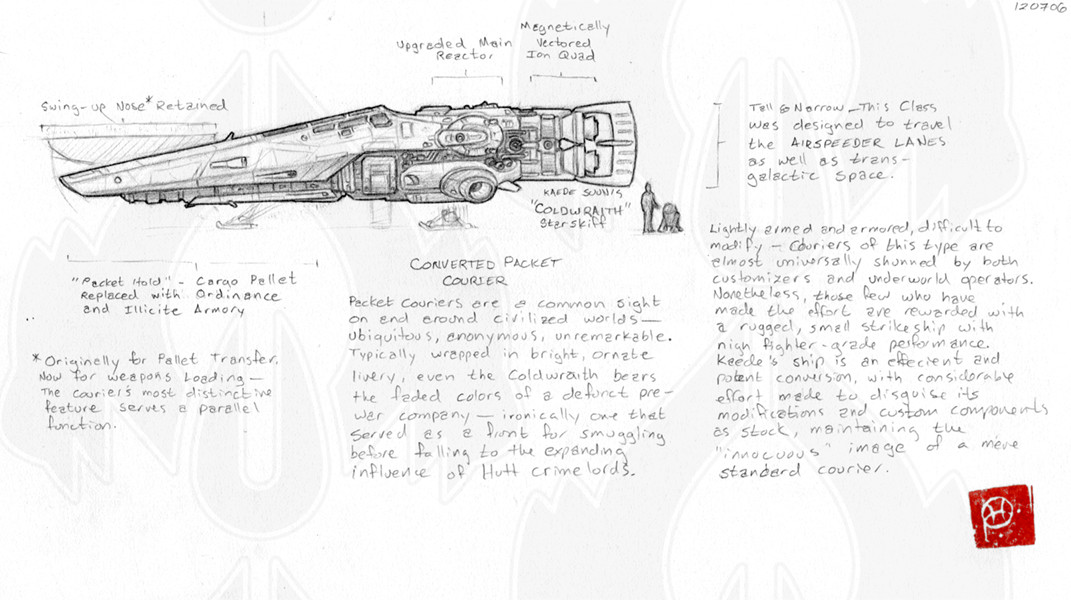 120706
Magnetically
Vectored
Ion Quad
Upgraded Main
Reactor
Swing-up Nose* Retained
Tall & Narrow - This Class
was designed to travel
the AIRSPEEDER LANES
as well as trans-
galactic space.
KAEDE SUNNIS
"COLDWRAITH"
Starskiff
"Packet Hold" - Cargo Pallet
Replaced with Ordinance
and Illicite Armory
* Originally for Pallet Transfer.
Now for weapons Loading —
The courier's most distinctive
feature serves a parallel
function.
CONVERTED PACKET
COURIER
Packet Couriers are a common sight
on and around civilized worlds —
ubiquitous, anonymous, unremarkable.
Typically wrapped in bright, ornate
livery, even the Coldwraith bears
the faded colors of a defunct pre-
war company — ironically one that
served as a front for smuggling
before falling to the expanding
influence of Hutt crimelords.
Lightly armed and armored, difficult to
modify — Couriers of this type are
almost universally shunned by both
customizers and underworld operators.
Nonetheless, those few who have
made the effort are rewarded with
a rugged, small strikeship with
nigh fighter-grade performance.
Kaede's ship is an effecient and
potent conversion, with considerable
effort made to disguise its
modifications and custom components
as stock, maintaining the
"innocuous" image of a mere
standard courier.